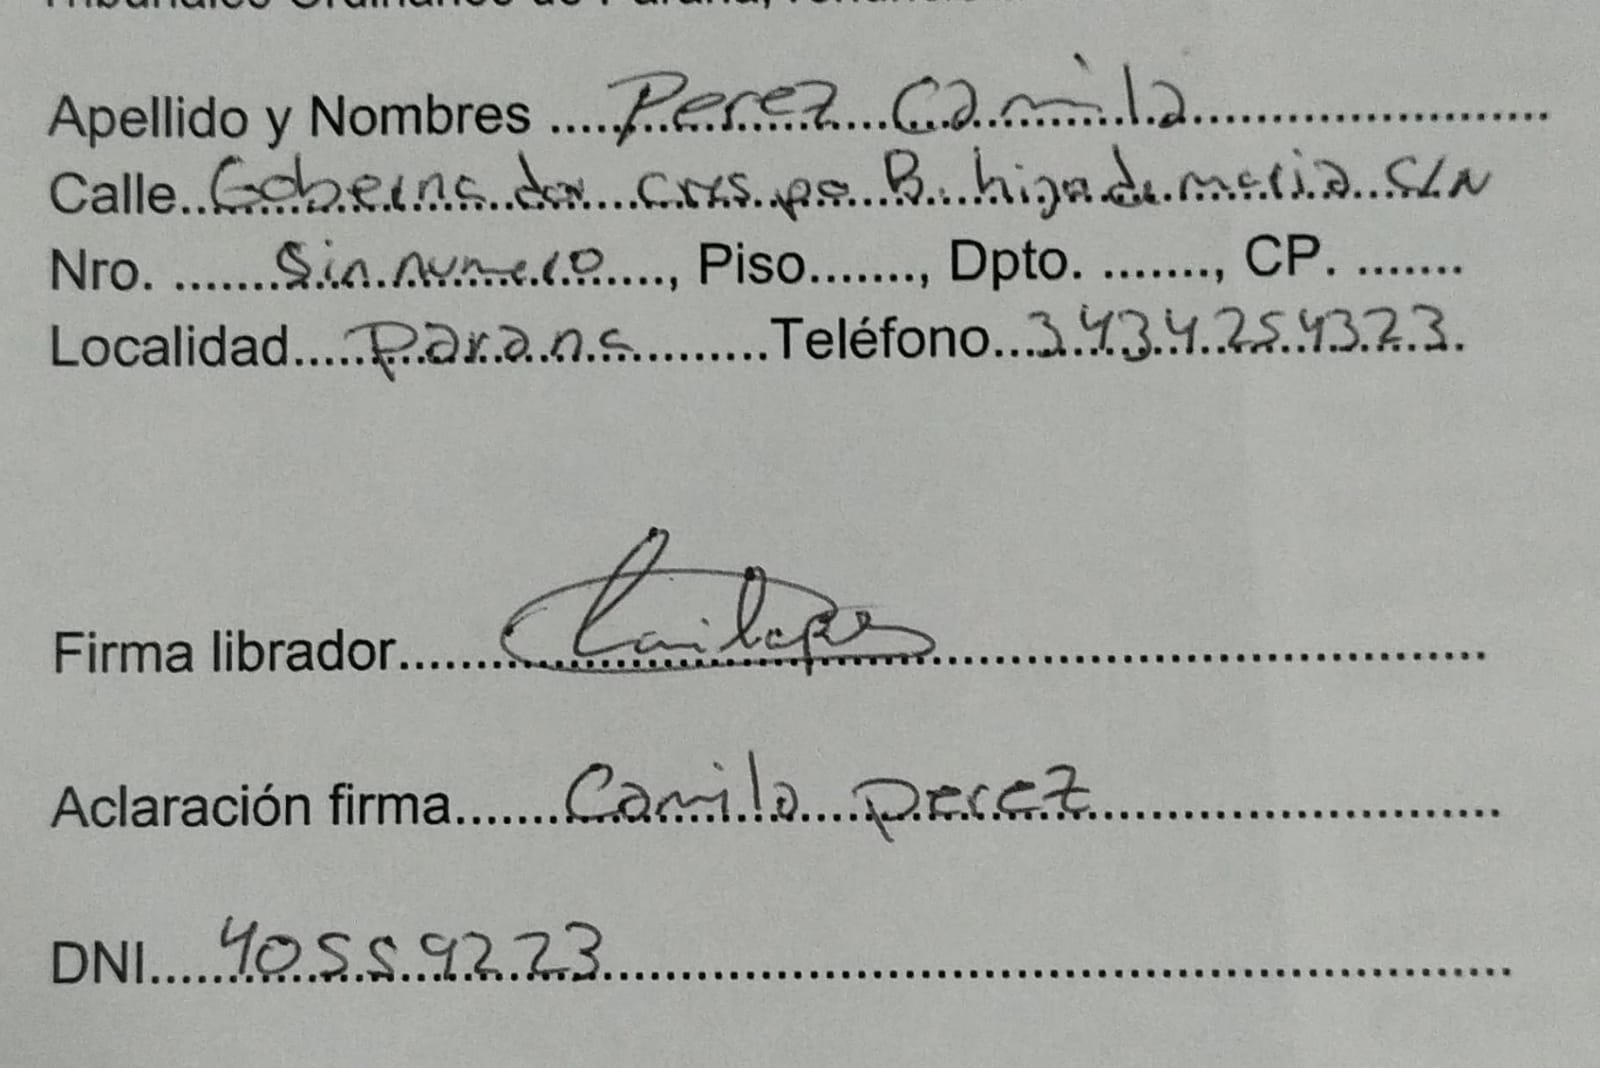 Tribunales Ordinarios de Paraná,
Apellido y Nombres ..... Perez Camila
Calle.. Gobernador crespo B. hija de maria S/N
Nro. ....... Sin numero ...., Piso......., Dpto. ......., CP. .......
Localidad..... Parana .........Teléfono... 3434254323.
Firma librador.......
Aclaración firma....... Camila perez
DNI..... 40559223